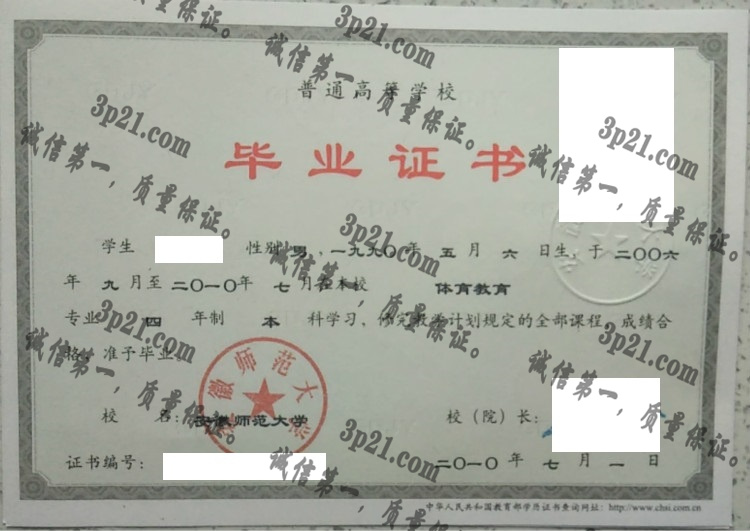 普通高等学校
毕业证书
学生 性别 男，一九九〇年 五 月 六 日生，于 二〇〇六
年 九 月至 二〇一〇年 七 月在本校 体育教育
专业 四 年制 本 科学习，修完教学计划规定的全部课程，成绩合
格，准予毕业。
校 名：安徽师范大学
校（院）长：
证书编号：
二〇一〇 年 七 月 一 日
中华人民共和国教育部学历证书查询网址：http://www.chsi.com.cn
安徽师范大学
3p21.com
诚信第一，质量保证。
3p21.com
诚信第一，质量保证。
3p21.com
诚信第一，质量保证。
3p21.com
诚信第一，质量保证。
3p21.com
诚信第一，质量保证。
3p21.com
诚信第一，质量保证。
3p21.com
诚信第一，质量保证。